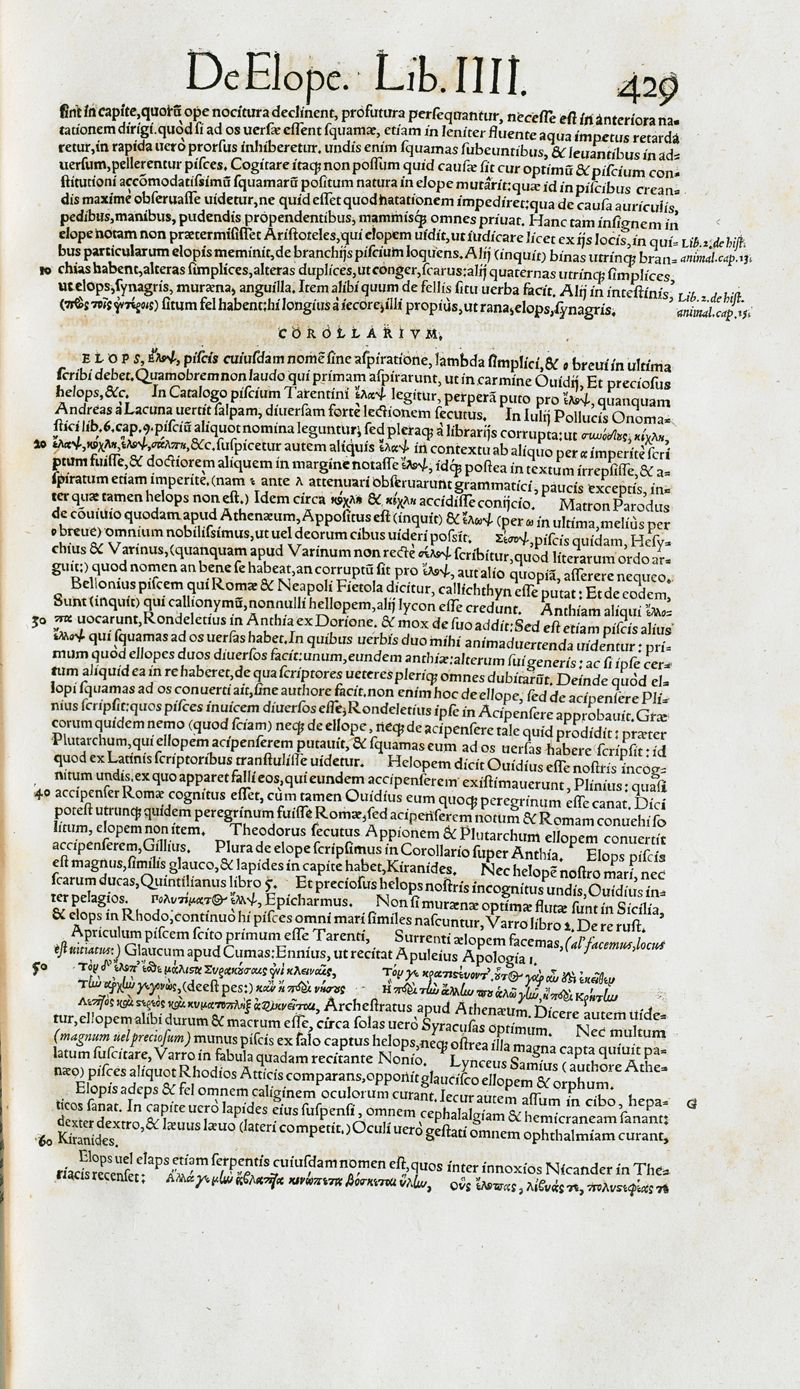 De Elope. Lib. IIII. 429
sint in capite, quorũ ope nocitura declinent, profutura persequantur, necesse est in anteriora na-
tationem dirigi. quòd si ad os uersæ essent squamæ, etiam in leniter fluente aqua impetus retardà
retur, in rapida uerò prorsus inhiberetur. undis enim squamas subeuntibus, & leuantibus in ad-
uersum, pellerentur pisces. Cogitare itaq; non possum quid causæ sit cur optimũ & piscium con-
stitutioni accõmodatissimũ squamarũ positum natura in elope mutârit: quæ id in piscibus crean-
dis maximè obseruasse uidetur, ne quid esset quod natationem impediret: qua de causa auriculis,
pedibus, manibus, pudendis propendentibus, mammisq; omnes priuat. Hanc tam insignem in
elope notam non prætermisisset Aristoteles, qui elopem uidit, ut iudicare licet ex ijs locis, in qui-
Lib. 2. de hist.
bus particularum elopis meminit, de branchijs piscium loquens. Alij (inquit) binas utrinq; bran-
animal. cap. 13.
10 chias habent, alteras simplices, alteras duplices, ut conger, scarus: alij quaternas utrinq; simplices,
ut elops, synagris, muræna, anguilla. Item alibi quum de fellis situ uerba facit. Alij in intestinis,
Lib. 2. de hist.
(πρὸς τοῖς ἐντέροις) situm fel habent: hi longius à iecore, illi propiùs, ut rana, elops, synagris.
animal. cap. 15.
COROLLARIVM.
ELOPS, ἔλοψ, piscis cuiusdam nomẽ sine aspiratione, lambda simplici, & ο breui in ultima
scribi debet. Quamobrem non laudo qui primam aspirarunt, ut in carmine Ouidij, Et preciosus
helops, &c. In Catalogo piscium Tarentini ἔλαψ legitur, perperã puto pro ἔλοψ, quanquam
Andreas à Lacuna uertit salpam, diuersam fortè lectionem secutus. In Iulij Pollucis Onoma-
stici lib. 6. cap. 9. pisciũ aliquot nomina leguntur, sed pleraq; à librarijs corrupta: ut κίχλη,
20 ἔλαψ, κόχλη, ἔλοψ, σάλπη, &c. suspicetur autem aliquis ἔλαψ in contextu ab aliquo per α imperitè scri
ptum fuisse, & doctiorem aliquem in margine notasse ἔλοψ, idq; postea in textum irrepsisse, & a-
spiratum etiam imperitè. (nam ε ante λ attenuari obseruarunt grammatici, paucis exceptis, in-
ter quæ tamen helops non est.) Idem circa κόχλη & κίχλη accidisse conijcio. Matron Parodus
de cõuiuio quodam apud Athenæum, Appositus est (inquit) & ἔλωψ (per ω in ultima, meliùs per
ο breue) omnium nobilissimus, ut uel deorum cibus uideri possit. piscis quidam, Hesy-
chius & Varinus, (quanquam apud Varinum non rectè scribitur, quod literarum ordo ar-
guit:) quod nomen an bene se habeat, an corruptũ sit pro ἔλοψ, aut alio quopiã, asserere nequeo.
Bellonius piscem qui Romæ & Neapoli Fietola dicitur, callichthyn esse putat: Et de eodem,
Sunt (inquit) qui callionymũ, nonnulli hellopem, alij lycon esse credunt. Anthiam aliqui ἔλλο-
30 πα uocarunt, Rondeletius in Anthia ex Dorione. & mox de suo addit: Sed est etiam piscis alius
ἔλλοψ qui squamas ad os uersas habet. In quibus uerbis duo mihi animaduertenda uidentur: pri-
mum quod ellopes duos diuersos facit: unum, eundem anthiæ: alterum sui generis: ac si ipse cer-
tum aliquid ea in re haberet, de qua scriptores ueteres pleriq; omnes dubitarũt. Deinde quòd el-
lopi squamas ad os conuerti ait, sine authore facit. non enim hoc de ellope, sed de acipensere Pli-
nius scripsit: quos pisces inuicem diuersos esse, Rondeletius ipse in Acipensere approbauit. Græ
corum quidem nemo (quod sciam) neq; de ellope, neq; de acipensere tale quid prodidit: præter
Plutarchum, qui ellopem acipenserem putauit, & squamas eum ad os uersas habere scripsit: id
quod ex Latinis scriptoribus transtulisse uidetur. Helopem dicit Ouidius esse nostris incog-
nitum undis. ex quo apparet falli eos, qui eundem accipenserem existimauerunt, Plinius: quasi
40 accipenser Romæ cognitus esset, cùm tamen Ouidius eum quoq; peregrinum esse canat. Dici
potest utrunq; quidem peregrinum fuisse Romæ, sed acipenserem notum & Romam conuehi so
litum, elopem non item. Theodorus secutus Appionem & Plutarchum ellopem conuertit
accipenserem, Gillius. Plura de elope scripsimus in Corollario super Anthia. Elops piscis
est magnus, similis glauco, & lapides in capite habet, Kiranides. Nec helopẽ nostro mari, nec
scarum ducas, Quintilianus libro 5. Et preciosus helops nostris incognitus undis, Ouidius in-
ter pelagios. Πολυτίματος ἔλοψ, Epicharmus. Non si murænæ optimæ flutæ sunt in Sicilia,
& elops in Rhodo, continuo hi pisces omni mari similes nascuntur, Varro libro 2. De re rust.
Apriculum piscem scito primum esse Tarenti, Surrenti ælopem facemas, (al' facemus, locus
est uitiatus:) Glaucum apud Cumas: Ennius, ut recitat Apuleius Apologia 1.
50 Τὸν δ' ἔλοπ' ἔσθε μάλιστα Συρακόσαις ἐνὶ κλειναῖς, Τόν γε κρατιστεύοντ', οὗτος γὰρ αὖ δὴ ἐκεῖθεν
(deest pes:)
Archestratus apud Athenæum. Dicere autem uide-
tur, ellopem alibi durum & macrum esse, circa solas uerò Syracusas optimum. Nec multum
(magnum uel preciosum) munus piscis ex salo captus helops, neq; ostrea illa magna capta quiuit pa-
latum suscitare, Varro in fabula quadam recitante Nonio. Lynceus Samius (authore Athe-
næo) pisces aliquot Rhodios Atticis comparans, opponit glaucisco ellopem & orphum.
Elopis adeps & fel omnem caliginem oculorum curant. Iecur autem assum in cibo, hepa-
G
ticos sanat. In capite uerò lapides eius suspensi, omnem cephalalgiam & hemicraneam sanant:
dexter dextro, & læuus læuo (lateri competit.) Oculi uerò gestati omnem ophthalmiam curant,
60 Kiranides.
Elops uel elaps etiam serpentis cuiusdam nomen est, quos inter innoxios Nicander in The-
riacis recenset: Ἄλλα γε μὴν ἀβλαπτῆα κινώπετα βόσκεται ὕλην, Οὓς ἔλοπας, λίβυάς τε, πολυστεφέας τε